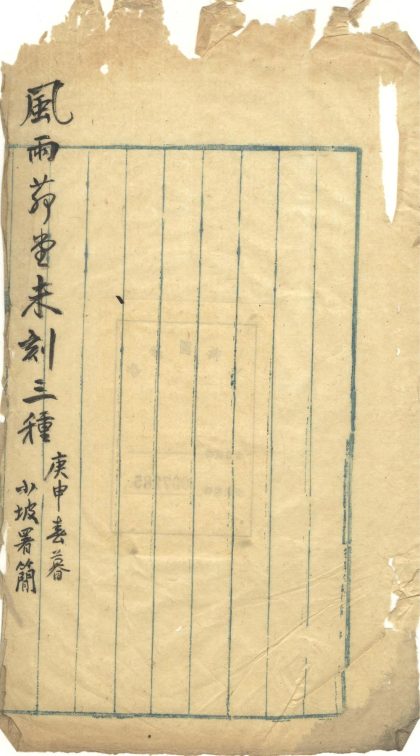 風雨茆堂未刻三種
庚申春暮
小坡署簡